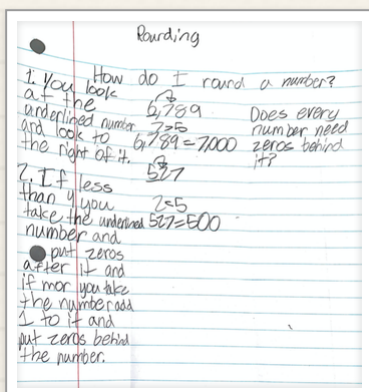 Rounding
How do I round a number?
1. You look
at the
underlined number
and look to
the right of it.
2. If less
than 4 you
take the underlined
number and
put zeros
after it and
if mor you take
the number add
1 to it and
put zeros behind
the number.
6,789
7>5
6,789=7,000
527
2<5
527=500
Does every
number need
zeros behind
it?